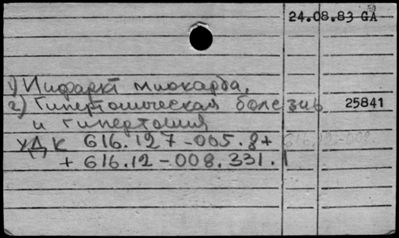 24.08.83 GA
1) Инфаркт миокарда,
2) Гипертоническая болезнь 25841
и гипертония
УДК 616.127-005.8+
+ 616.12-008.331.1